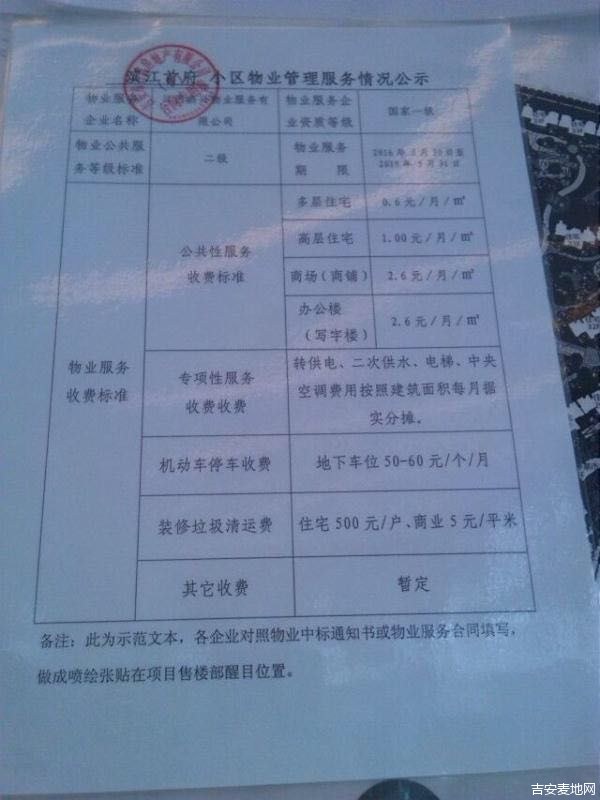 滨江首府 小区物业管理服务情况公示
物业服务
企业名称
物业服务有
限公司
物业服务企
业资质等级
国家一级
物业公共服
务等级标准
二级
物业服务
期 限
物业服务
收费标准
公共性服务
收费标准
多层住宅
0.6元/月/㎡
高层住宅
1.00元/月/㎡
商场(商铺)
2.6元/月/㎡
办公楼
(写字楼)
2.6元/月/㎡
专项性服务
收费收费
转供电、二次供水、电梯、中央
空调费用按照建筑面积每月据
实分摊。
机动车停车收费
地下车位50-60元/个/月
装修垃圾清运费
住宅500元/户、商业5元/平米
其它收费
暂定
备注：此为示范文本，各企业对照物业中标通知书或物业服务合同填写，
做成喷绘张贴在项目售楼部醒目位置。
吉安麦地网